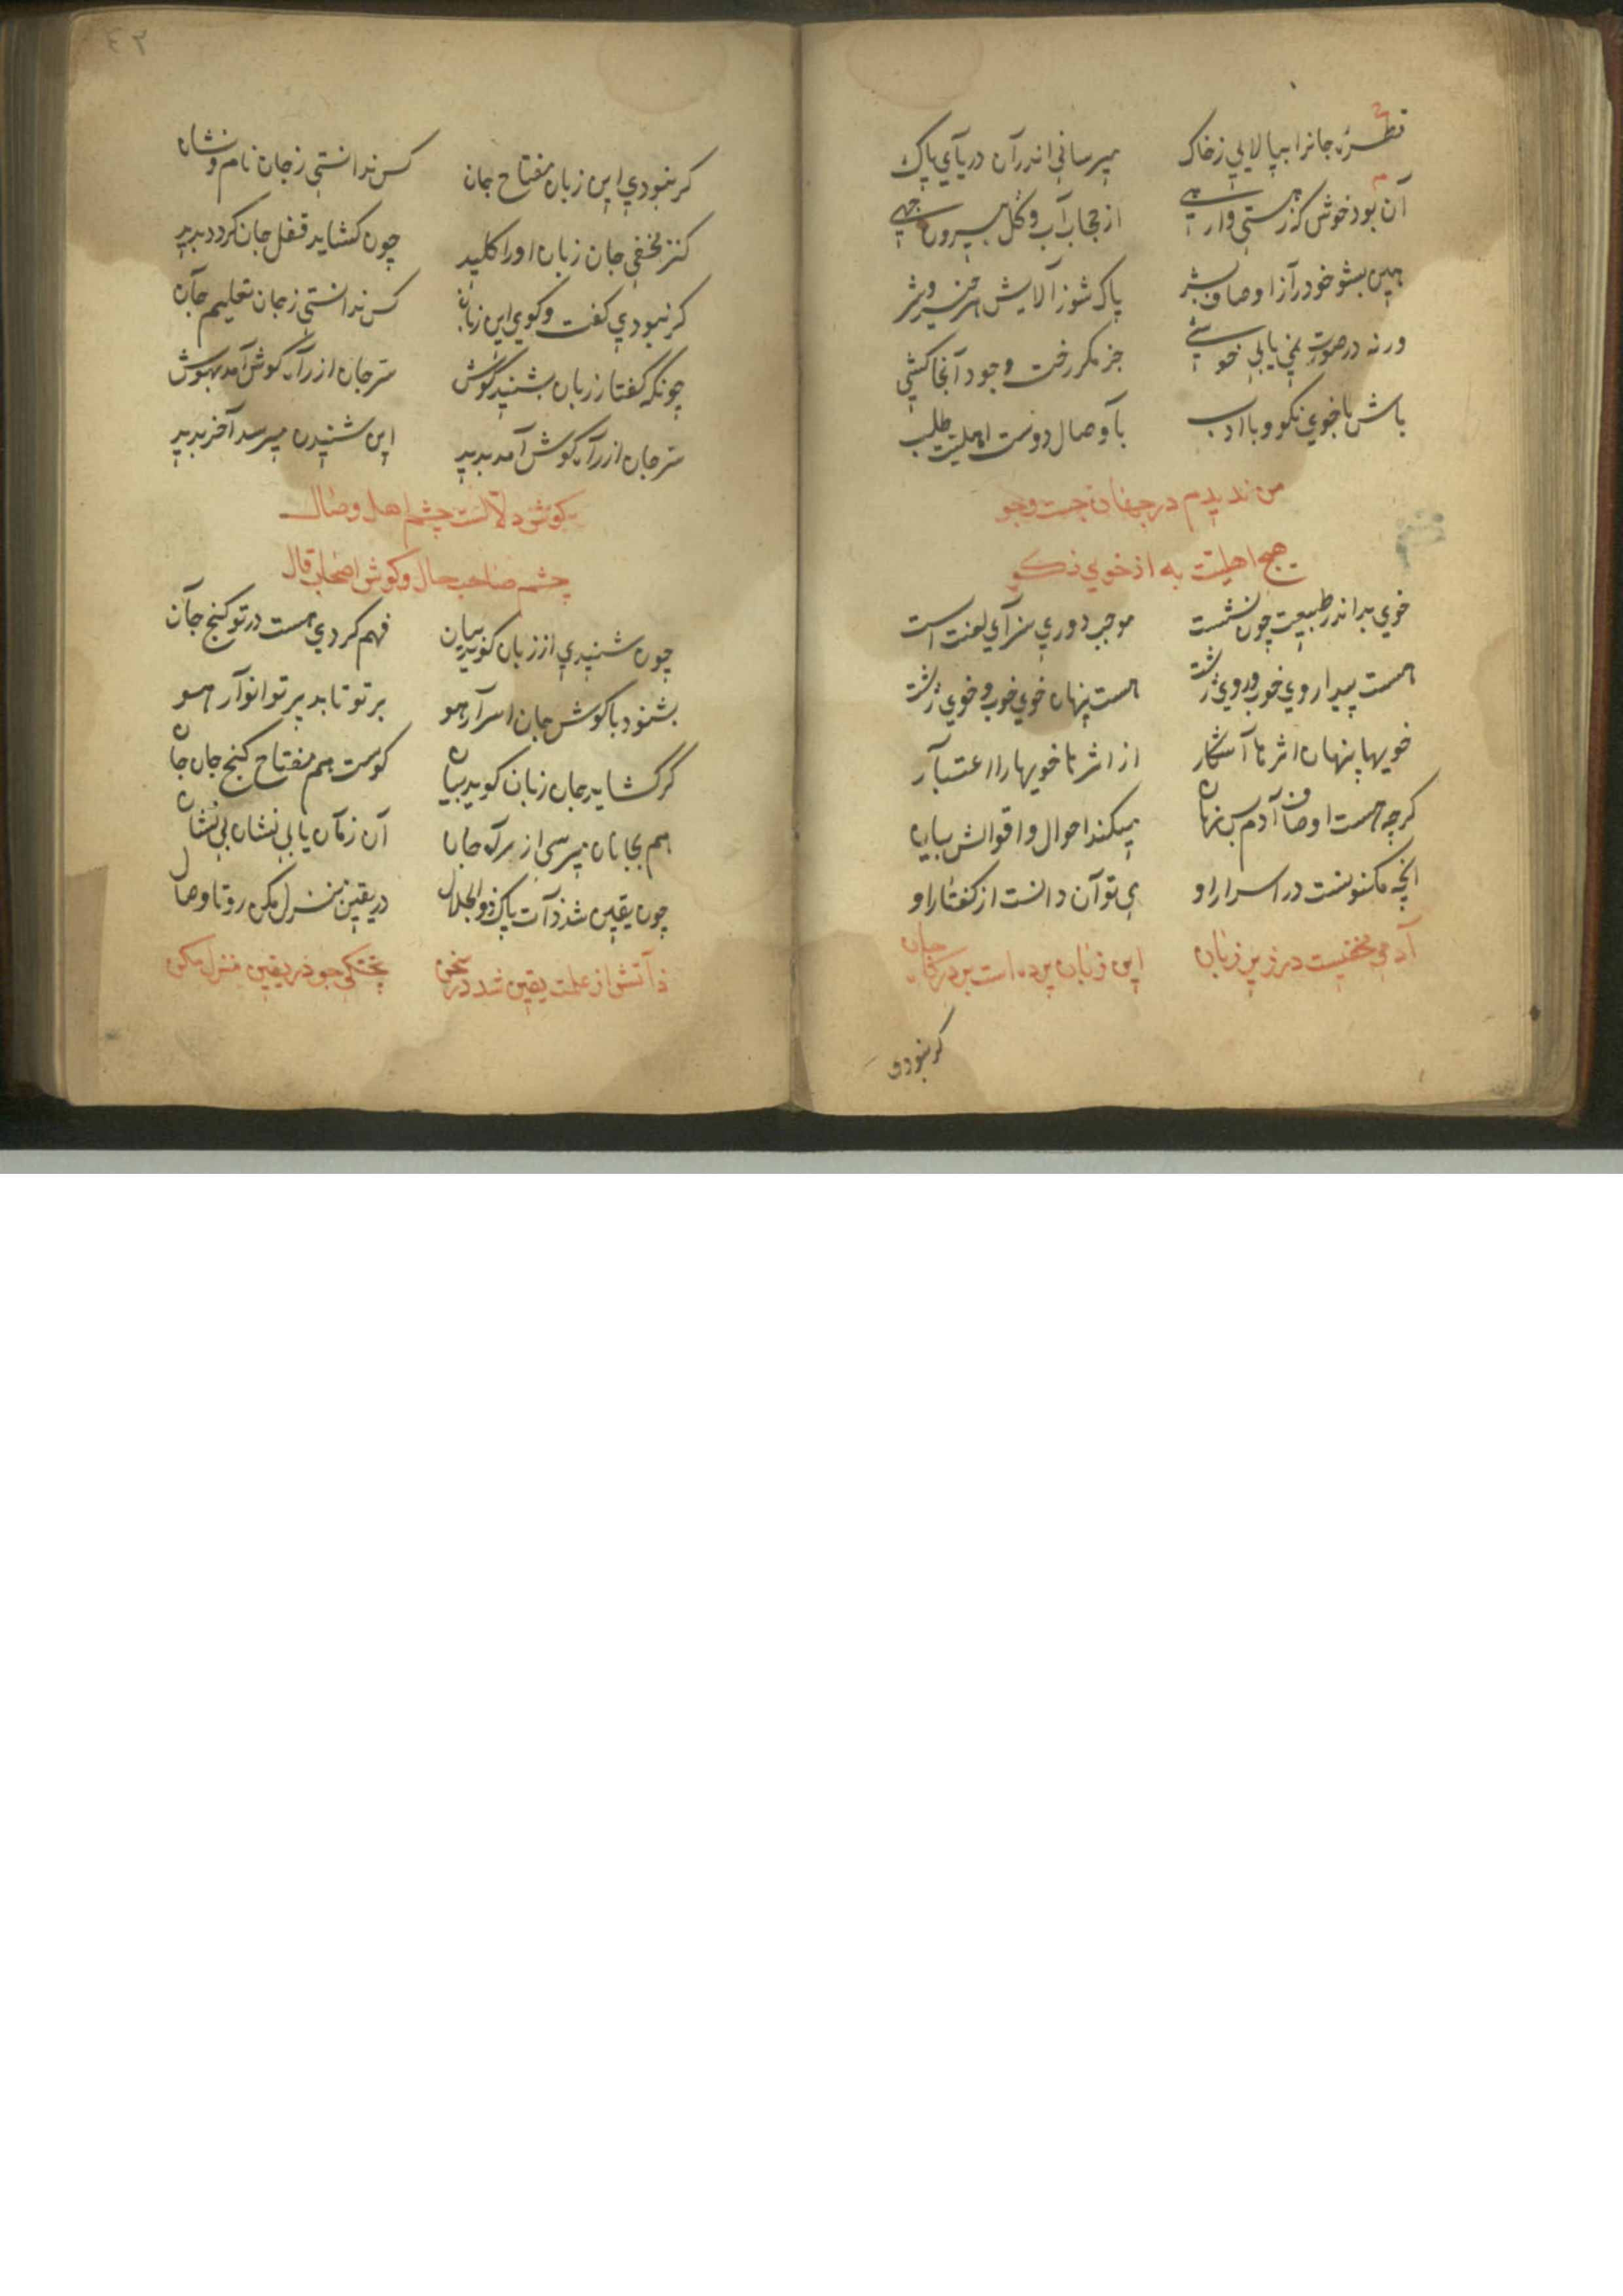 قطره جانرا بپالايي زخاک ميرساني اندر آن درياي پاک
آن بود خوش کز هستي وارهي از حجاب آب و گل بيرون جهي
هين بشو خود را از اوصاف بشر پاک شو ز آلايش هر خير و شر
ورنه در صورت نمي يابي خوشي جز مکر رخت وجود آنجا کشي
باش با خوي نکو و با ادب با وصال دوست اهليت طلب
من نديدم در جهان جست و جو
هيچ اهليت به از خوي نکو
خوي بد اندر طبيعت چون نشست موجب دوري سزاي لعنت است
هست پيدا روي خوب و روي زشت هست پنهان خوي خوب و خوي زشت
خويها پنهان اثرها آشکار از اثرها خويها را اعتبار
کرچه هست اوصاف آدم بس نهان ميکند احوال و اقوالش بيان
آنچه مکنونست در اسرار او پي توان دانست از کفتار او
آدمي مخفيست در زير زبان اين زبان پرده است بر درکاه جان
کر نبودي
٤٢
کر نبودي اين زبان مفتاح جان کس ندانستي ز جان نام و نشان
کنز مخفي جان زبان او را کليد چون کشايد قفل جان کردد بديد
کر نبودي کفت و کوي اين زبان کس ندانستي ز جان تعليم جان
چونکه کفتار زبان بشنيد کوش سر جان از راه کوش آمد بهوش
سر جان از راه کوش آمد بديد اين شنيدن ميرسد آخر بديد
کوش دلالست چشم اهل وصال
چشم صاحب حال و کوش اصحاب قال
چون شنيدي از زبان کويد بيان فهم کردي هست در تو کنج جان
بشنود با کوش جان اسرار هو بر تو تابد پرتو انوار هو
کر کشايد جان زبان کويد بيان کوست هم مفتاح کنج جان جان
هم بجانان ميرسي از راه جان آن زمان يابي نشان بي نشان
چون يقين شد ذات پاک ذو الجلال در يقين منزل مکن رو تا وصال
ز آتش از علمت يقين شد در سخن پختکي جو در يقين منزل مکن